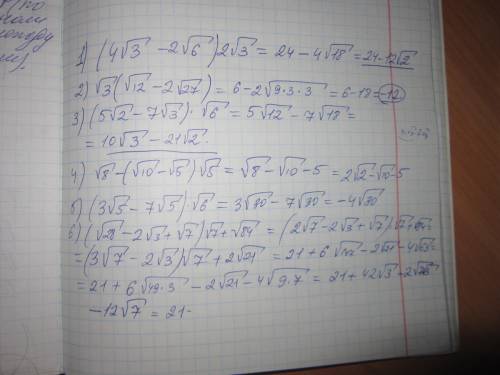 1) (4√3 - 2√6) 2√3 = 24 - 4√18 = 24 - 12√2
2) √3 (√12 - 2√27) = 6 - 2√(9·3·3) = 6 - 18 = -12
3) (5√2 - 7√3) · √6 = 5√12 - 7√18 =
= 10√3 - 21√2.
4) √8 - (√10 - √5) √5 = √8 - √10 - 5 = 2√2 - √10 - 5
5) (3√5 - 7√5) · √6 = 3√30 - 7√30 = -4√30
6) (√28 - 2√3 + √7) √7 + √84 = (2√7 - 2√3 + √7) √7 +
= (3√7 - 2√3) √7 + 2√21 = 21 + 6
= 21 + 6√(49·3) - 2√21 - 4√(9·7) = 21 + 42√3 - 2
- 12√7 = 21-